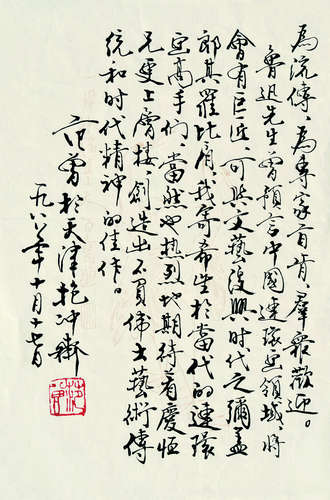 为流傳、為專家首肯、羣衆歡迎。
魯迅先生曾預言中國連環画領域、將
會有巨匠、可與文藝復興時代之彌蓋
郎其羅比肩、我寄希望於當代的連環
画高手们、當然也热烈地期待着慶恒
兄更上層楼、創造出不負佛士藝術傳
統和时代精神的佳作。
范曾於天津抱冲斋
一九八八年十月十七日